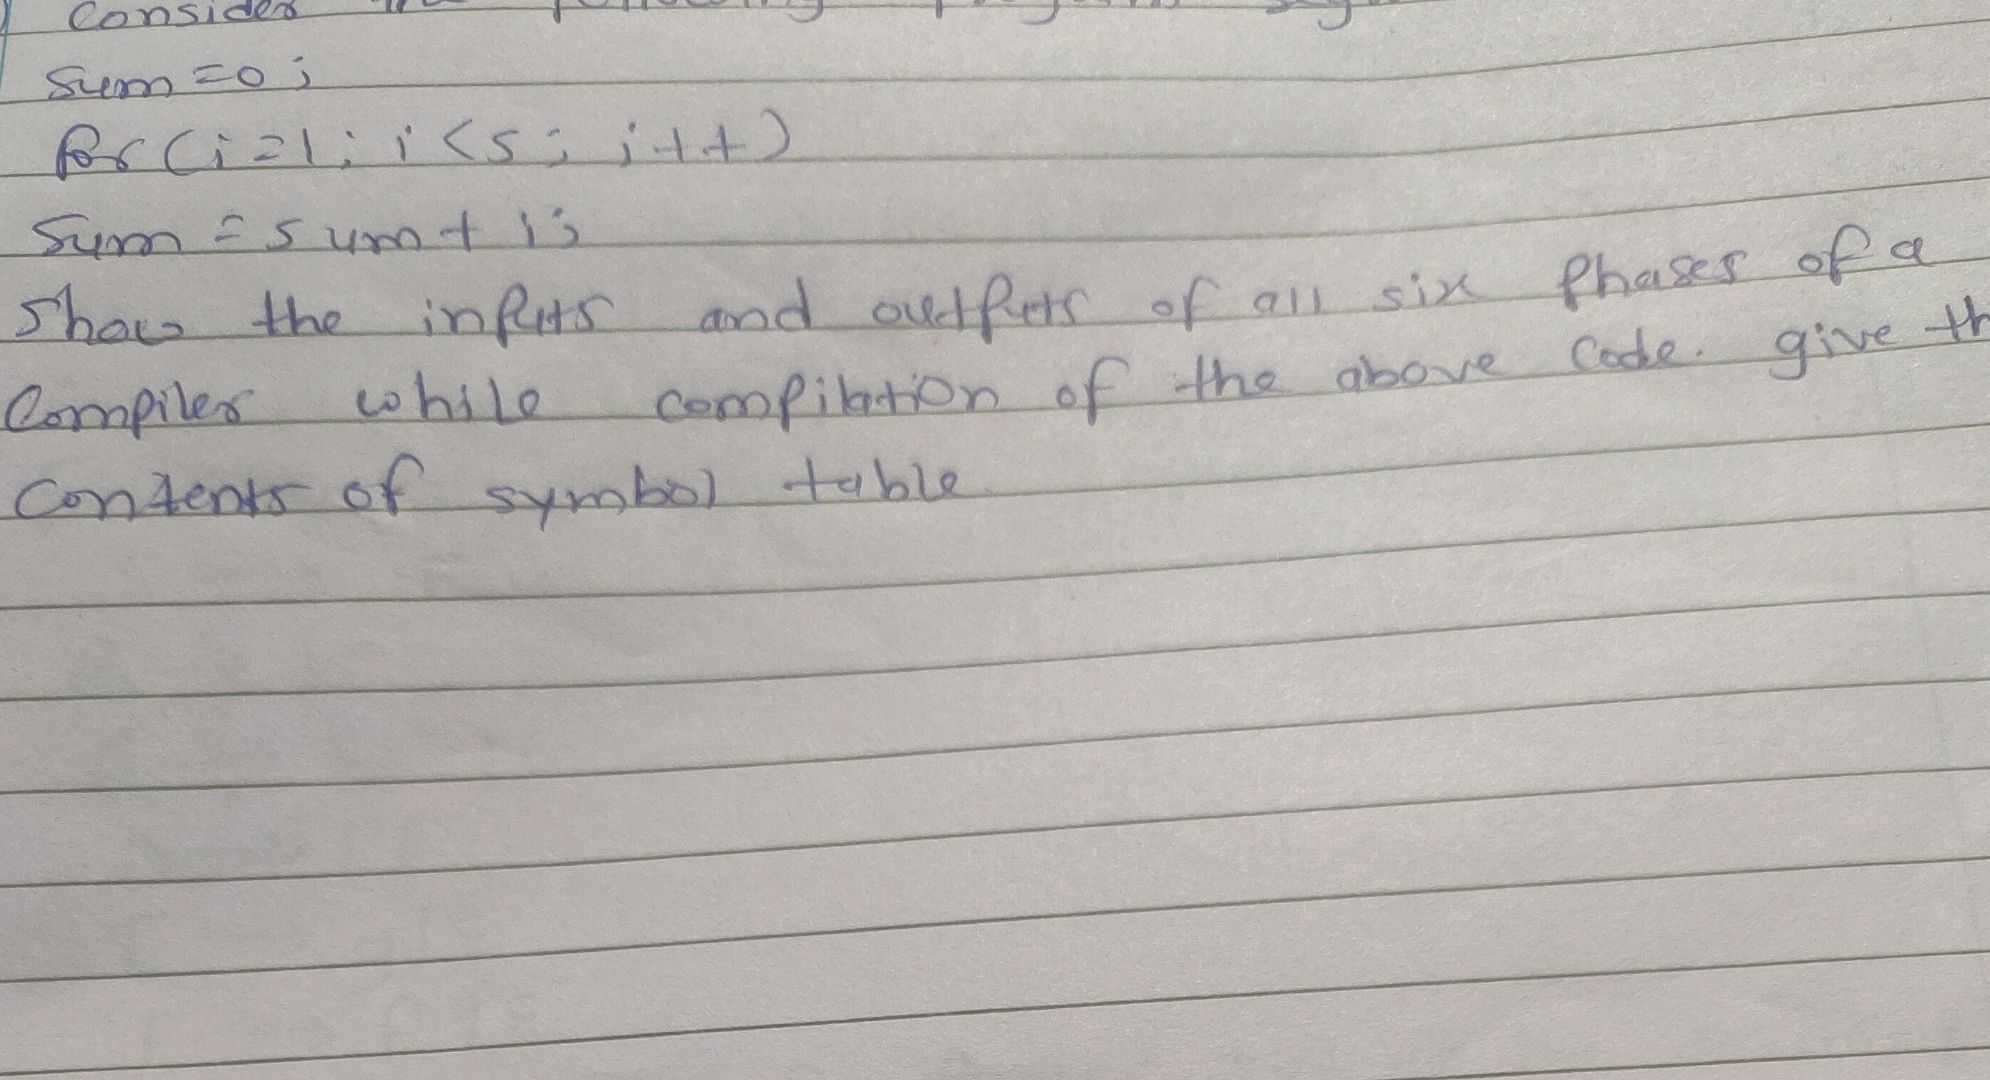 Consider
sum=0;
for(i=1; i<5; i++)
sum = sum + 1;
Show the inputs and outputs of all six phases of a
Compiler while compilation of the above code. give th
Contents of symbol table